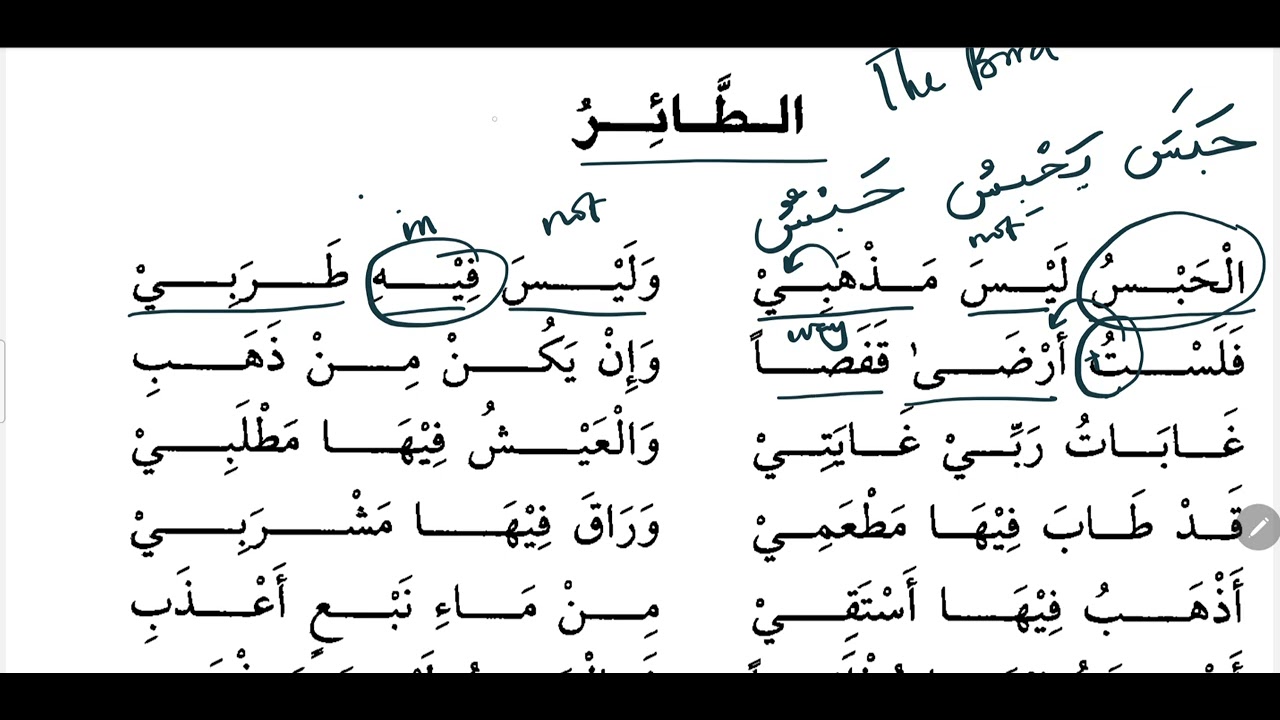 The Bird
الطَّائِرُ
حَبَسَ يَحْبِسُ حَبْسٌ
not in not
الْحَبْسُ لَيْسَ مَذْهَبِيْ وَلَيْسَ فِيْهِ طَرَبِيْ
way
فَلَسْتُ أَرْضَى قَفَصاً وَإِنْ يَكُنْ مِنْ ذَهَبِ
غَابَاتُ رَبِّيْ غَايَتِيْ وَالْعَيْشُ فِيْهَا مَطْلَبِيْ
قَدْ طَابَ فِيْهَا مَطْعَمِيْ وَرَاقَ فِيْهَا مَشْرَبِيْ
أَذْهَبُ فِيْهَا أَسْتَقِيْ مِنْ مَاءِ نَبْعٍ أَعْذَبِ